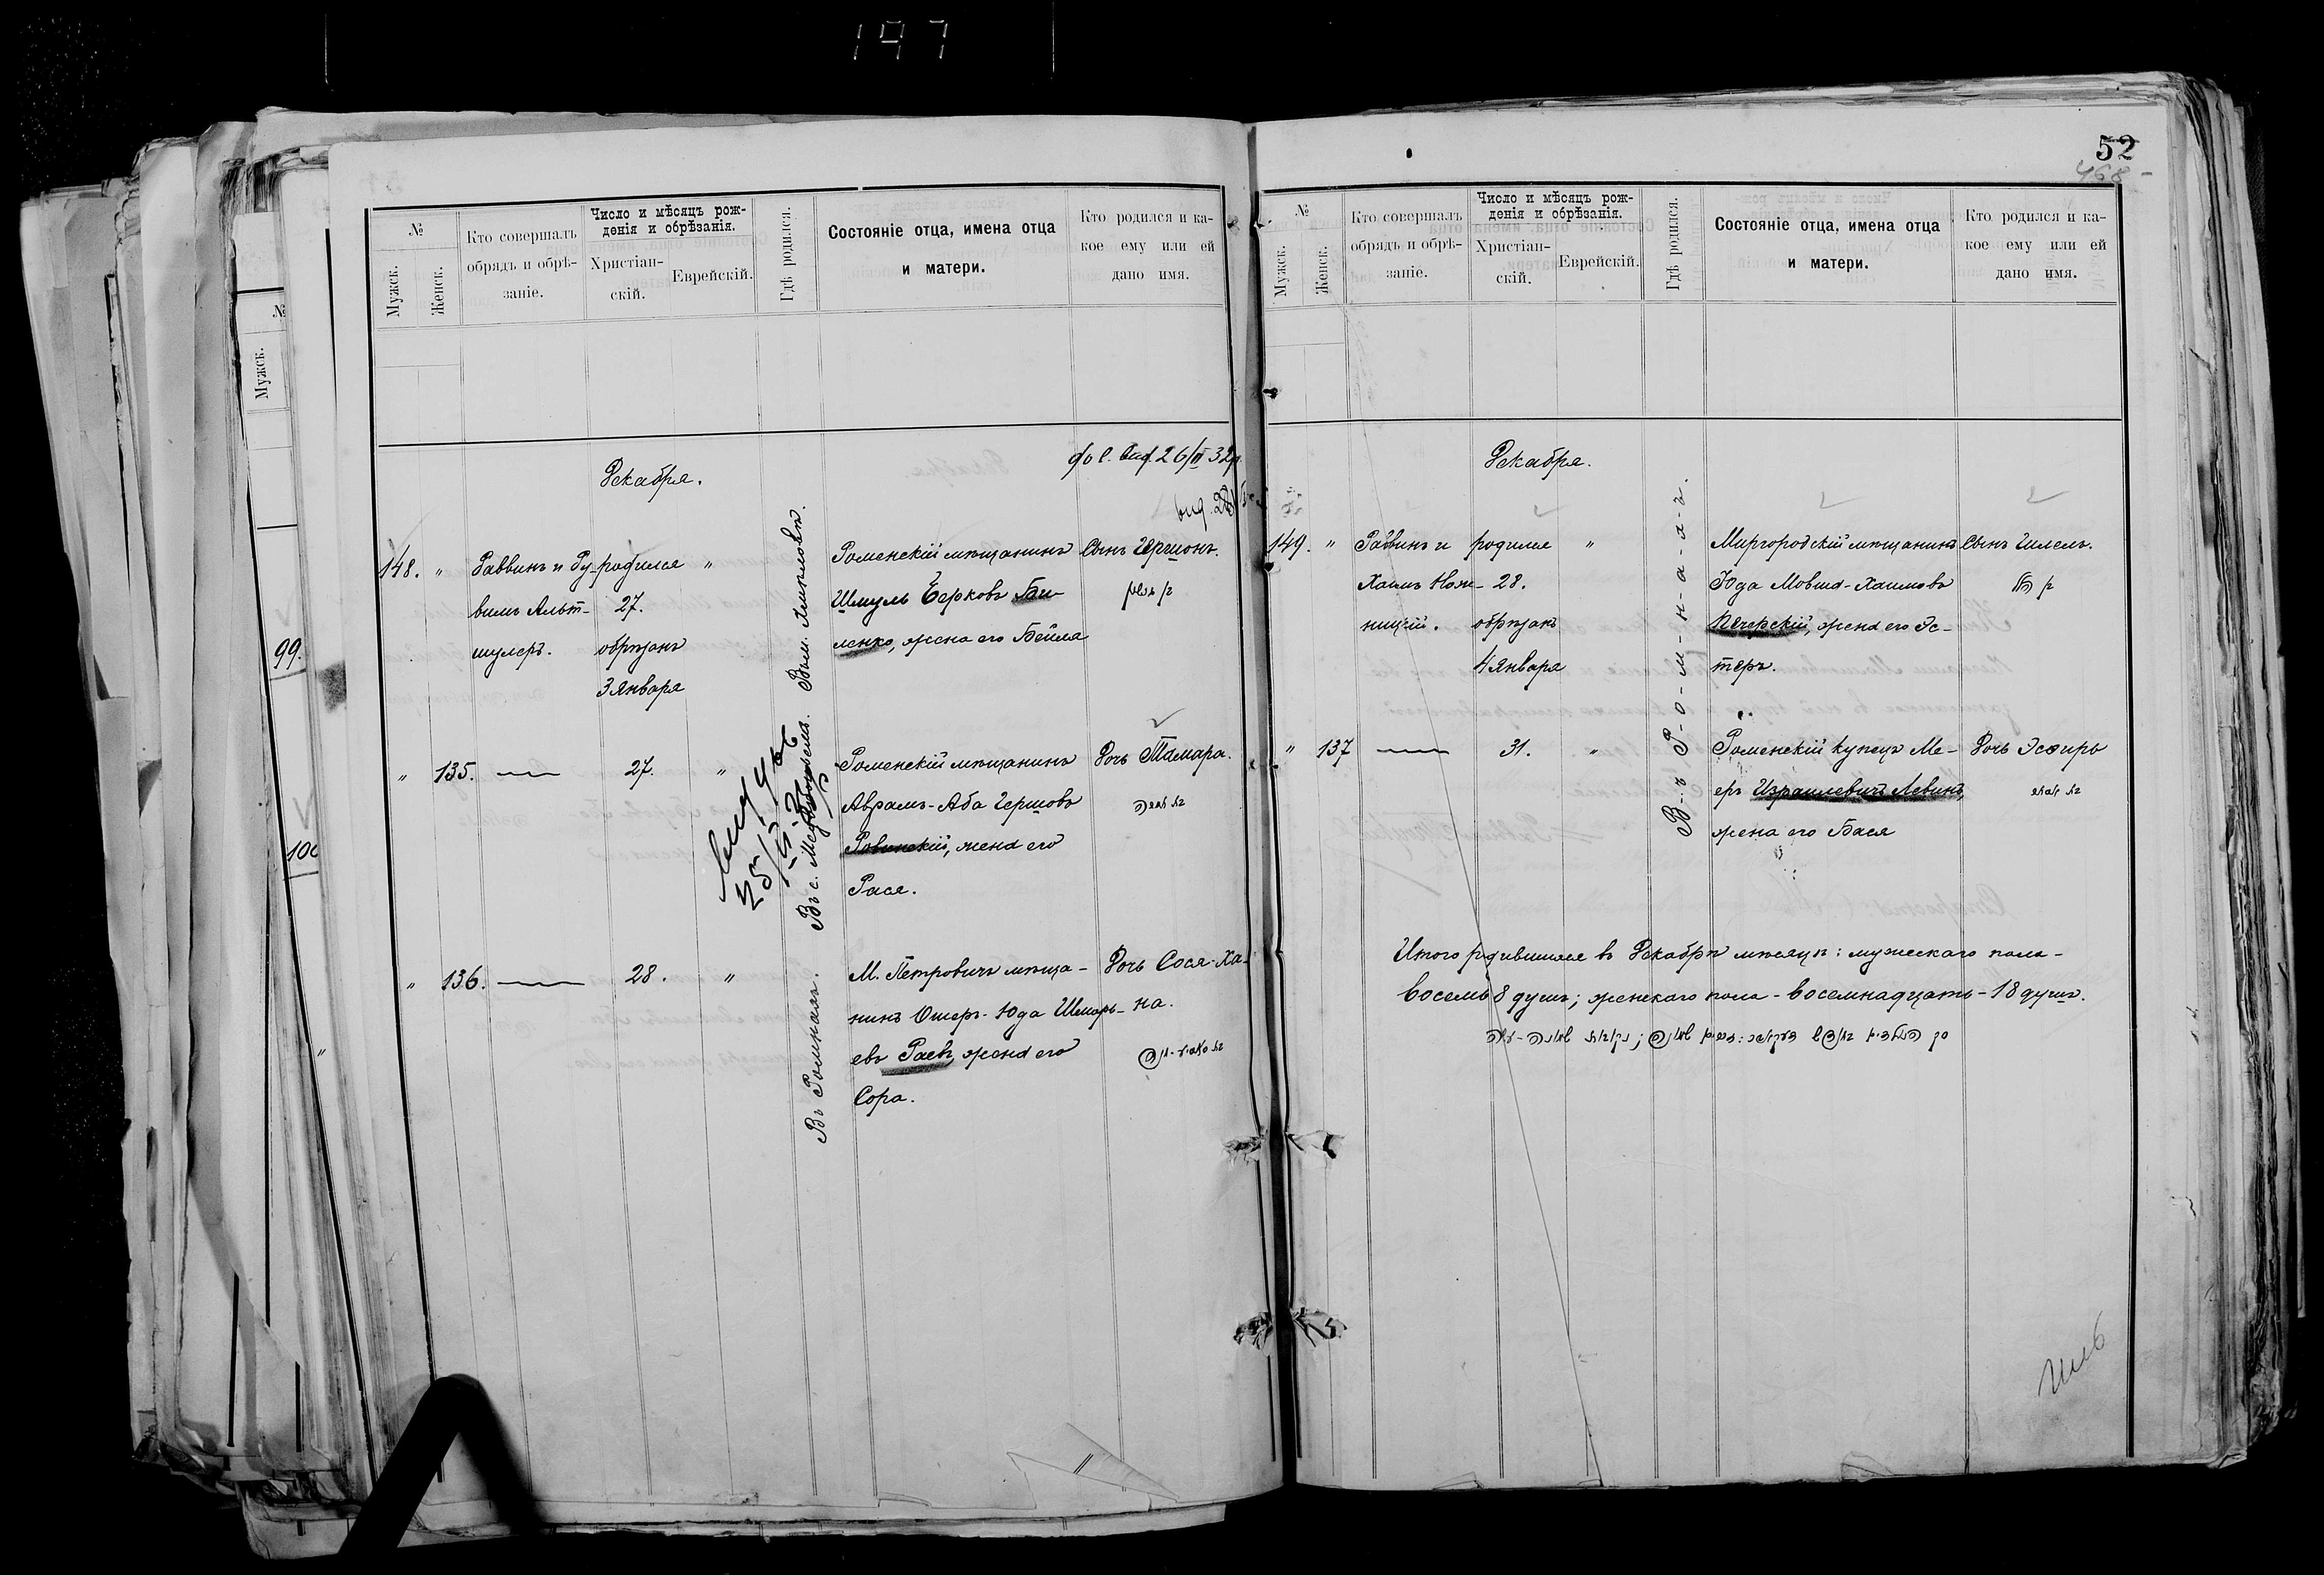 197
№
Мужск.
99.
100
№
Мужск.
Женск.
Кто совершалъ
обрядъ и обрѣ-
заніе.
Число и мѣсяцъ рож-
денія и обрѣзанія.
Христіан-
скій.
Еврейскій.
Гдѣ родился.
Состояніе отца, имена отца
и матери.
Кто родился и ка-
кое ему или ей
дано имя.
Декабря.
148.
"
Раввинъ и Ру-
вимъ Альт-
шулеръ.
родился
27.
обрѣзанъ
3 Января
"
Роменскій мѣщанинъ
Шмуль Берковъ
ленко, жена его Бейла
Сынъ Гершонъ.
בן גרשון
"
135.
27.
"
Въ с.
Роменскій мѣщанинъ
Аврамъ-Аба Гершовъ
Ровинскій, жена его
Рася.
Дочь Тамара.
בת תמרה
"
136.
28.
"
Въ Ромнахъ.
М. Петровичъ мѣща-
нинъ Ошеръ-Юда Шмарь-
евъ Раевъ, жена его
Сора.
Дочь Сося-Ха-
на.
52
468-
№
Мужск.
Женск.
Кто совершалъ
обрядъ и обрѣ-
заніе.
Число и мѣсяцъ рож-
денія и обрѣзанія.
Христіан-
скій.
Еврейскій.
Гдѣ родился.
Состояніе отца, имена отца
и матери.
Кто родился и ка-
кое ему или ей
дано имя.
Декабря.
149.
"
Раввинъ и
Хаимъ Нож-
ницкій.
родился
28.
обрѣзанъ
4 Января
"
В-ъ Р-о-м-н-а-х-ъ.
Миргородскій мѣщанинъ
Юда Мовша-Хаимовъ
Печерскій, жена его Эс-
теръ.
Сынъ Гилель.
בן הלל
"
137
31.
"
Роменскій купецъ Ме-
еръ Израилевичъ Левинъ,
жена его Бася
Дочь Эсфирь
בת אסתר
Итого родившихся въ Декабрѣ мѣсяцѣ: мужескаго пола-
восемь 8 душъ; женскаго пола-восемнадцать-18 душъ.